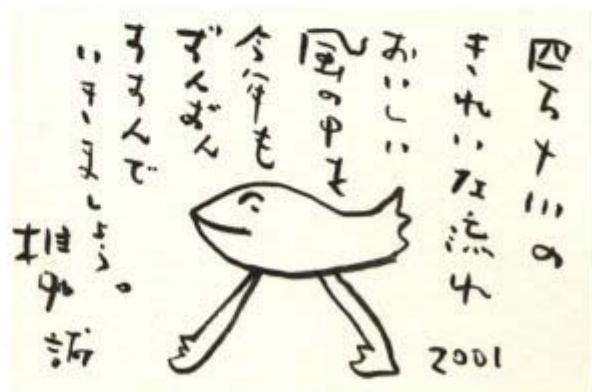 四万十川の
きれいな流れ
おいしい
風の中を
今年も
ずんずん
すすんで
いきましょう。
椎名誠
2001